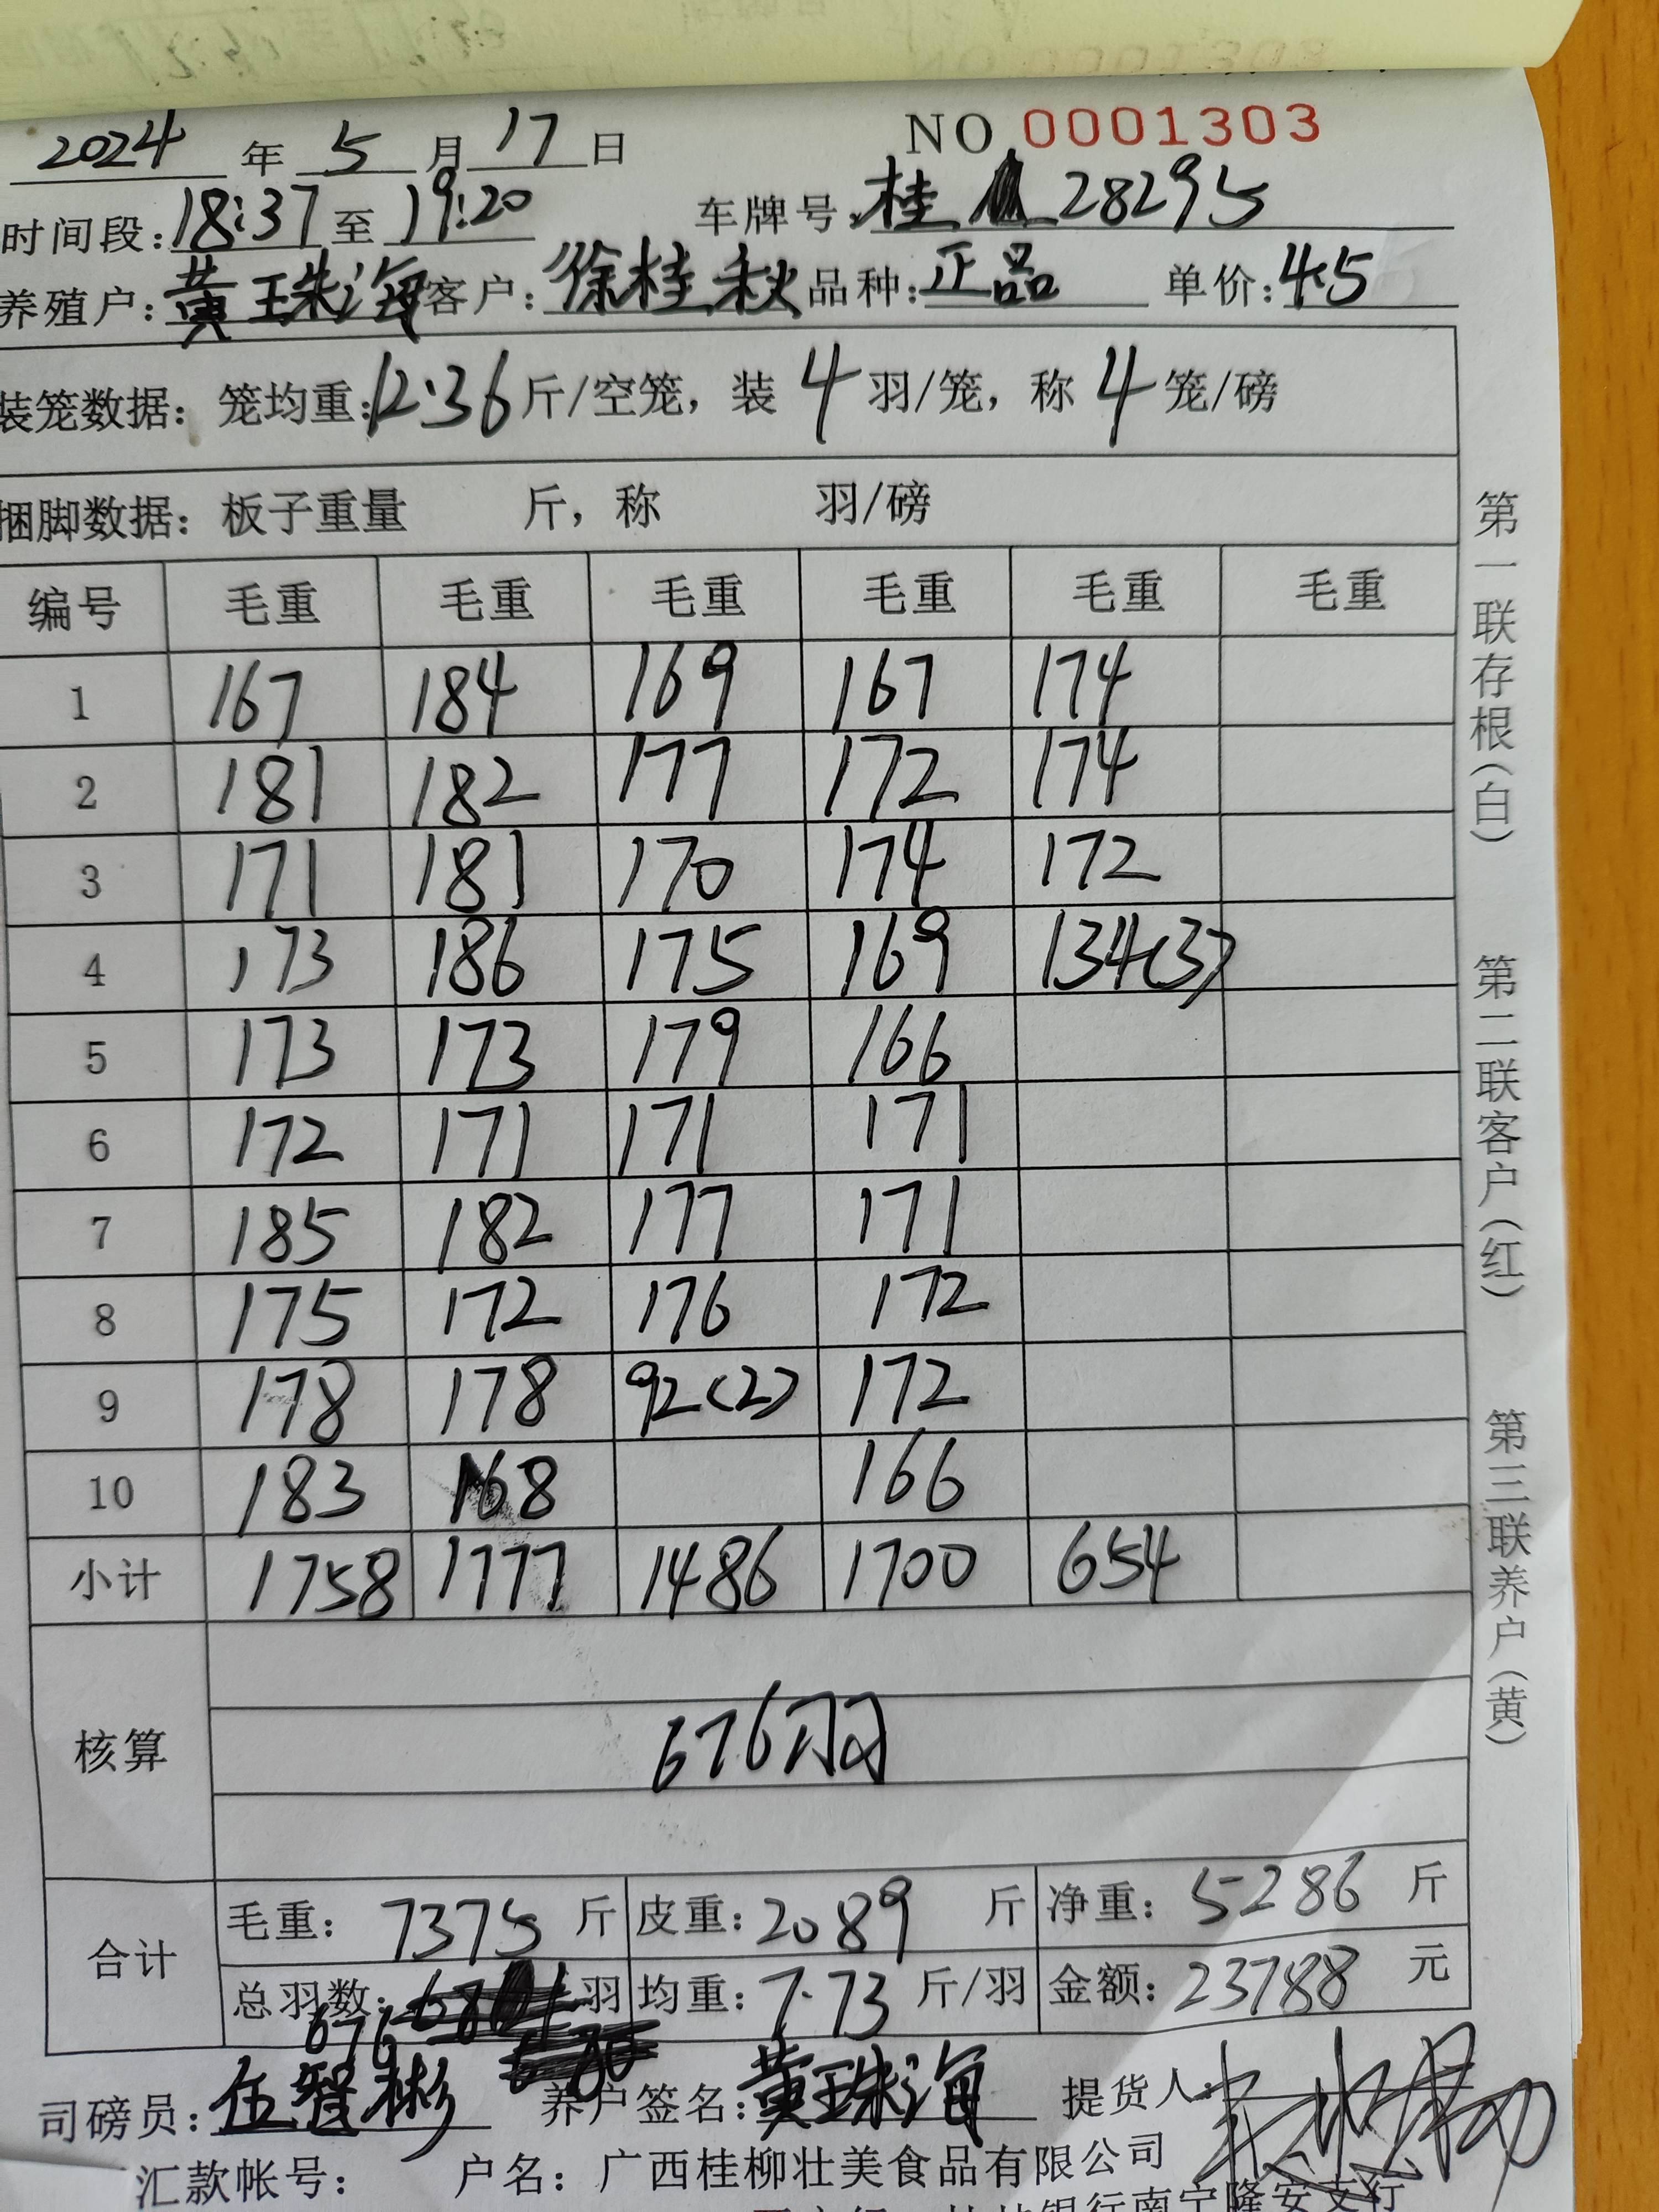 NO 0001303
2024 年 5 月 17 日
时间段: 18:37 至 19:20 车牌号: 桂 28295
养殖户: 黄珠海 客户: 徐桂秋 品种: 正品 单价: 4.5
装笼数据: 笼均重: 12.36 斤/空笼, 装 4 羽/笼, 称 4 笼/磅
捆脚数据: 板子重量 斤, 称 羽/磅
编号 毛重 毛重 毛重 毛重 毛重 毛重
1 167 184 169 167 174
2 181 182 177 172 174
3 171 181 170 174 172
4 173 186 175 169 134(3)
5 173 173 179 166
6 172 171 171 171
7 185 182 177 171
8 175 172 176 172
9 178 178 92(2) 172
10 183 168 166
小计 1758 1777 1486 1700 654
核算 676羽
合计 毛重: 7375 斤 皮重: 2089 斤 净重: 5286 斤
总羽数: 676 羽 均重: 7.73 斤/羽 金额: 23788 元
司磅员: 伍智彬 养户签名: 黄珠海 提货人:
汇款帐号: 户名: 广西桂柳壮美食品有限公司
银行南宁隆安支行
第一联存根(白)
第二联客户(红)
第三联养户(黄)